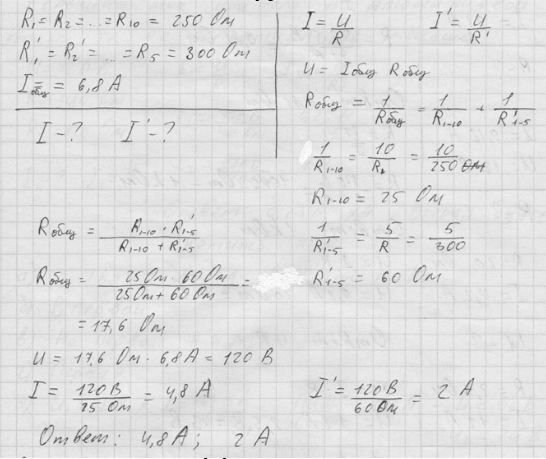 R₁ = R₂ = .. = R₁₀ = 250 Ом
R₁' = R₂' = ... = R₅ = 300 Ом
Iобщ = 6,8 А
I - ? I' - ?
I = U/R I' = U/R'
U = Iобщ Rобщ
Rобщ = 1/Rобщ = 1/R₁₋₁₀ + 1/R'₁₋₅
1/R₁₋₁₀ = 10/R₁ = 10/250 Ом
R₁₋₁₀ = 25 Ом
1/R'₁₋₅ = 5/R = 5/300
R'₁₋₅ = 60 Ом
Rобщ = R₁₋₁₀ · R'₁₋₅ / R₁₋₁₀ + R'₁₋₅
Rобщ = 25 Ом · 60 Ом / 25 Ом + 60 Ом =
= 17,6 Ом
U = 17,6 Ом · 6,8 А = 120 В
I = 120 В / 25 Ом = 4,8 А I' = 120 В / 60 Ом = 2 А
Ответ: 4,8 А; 2 А